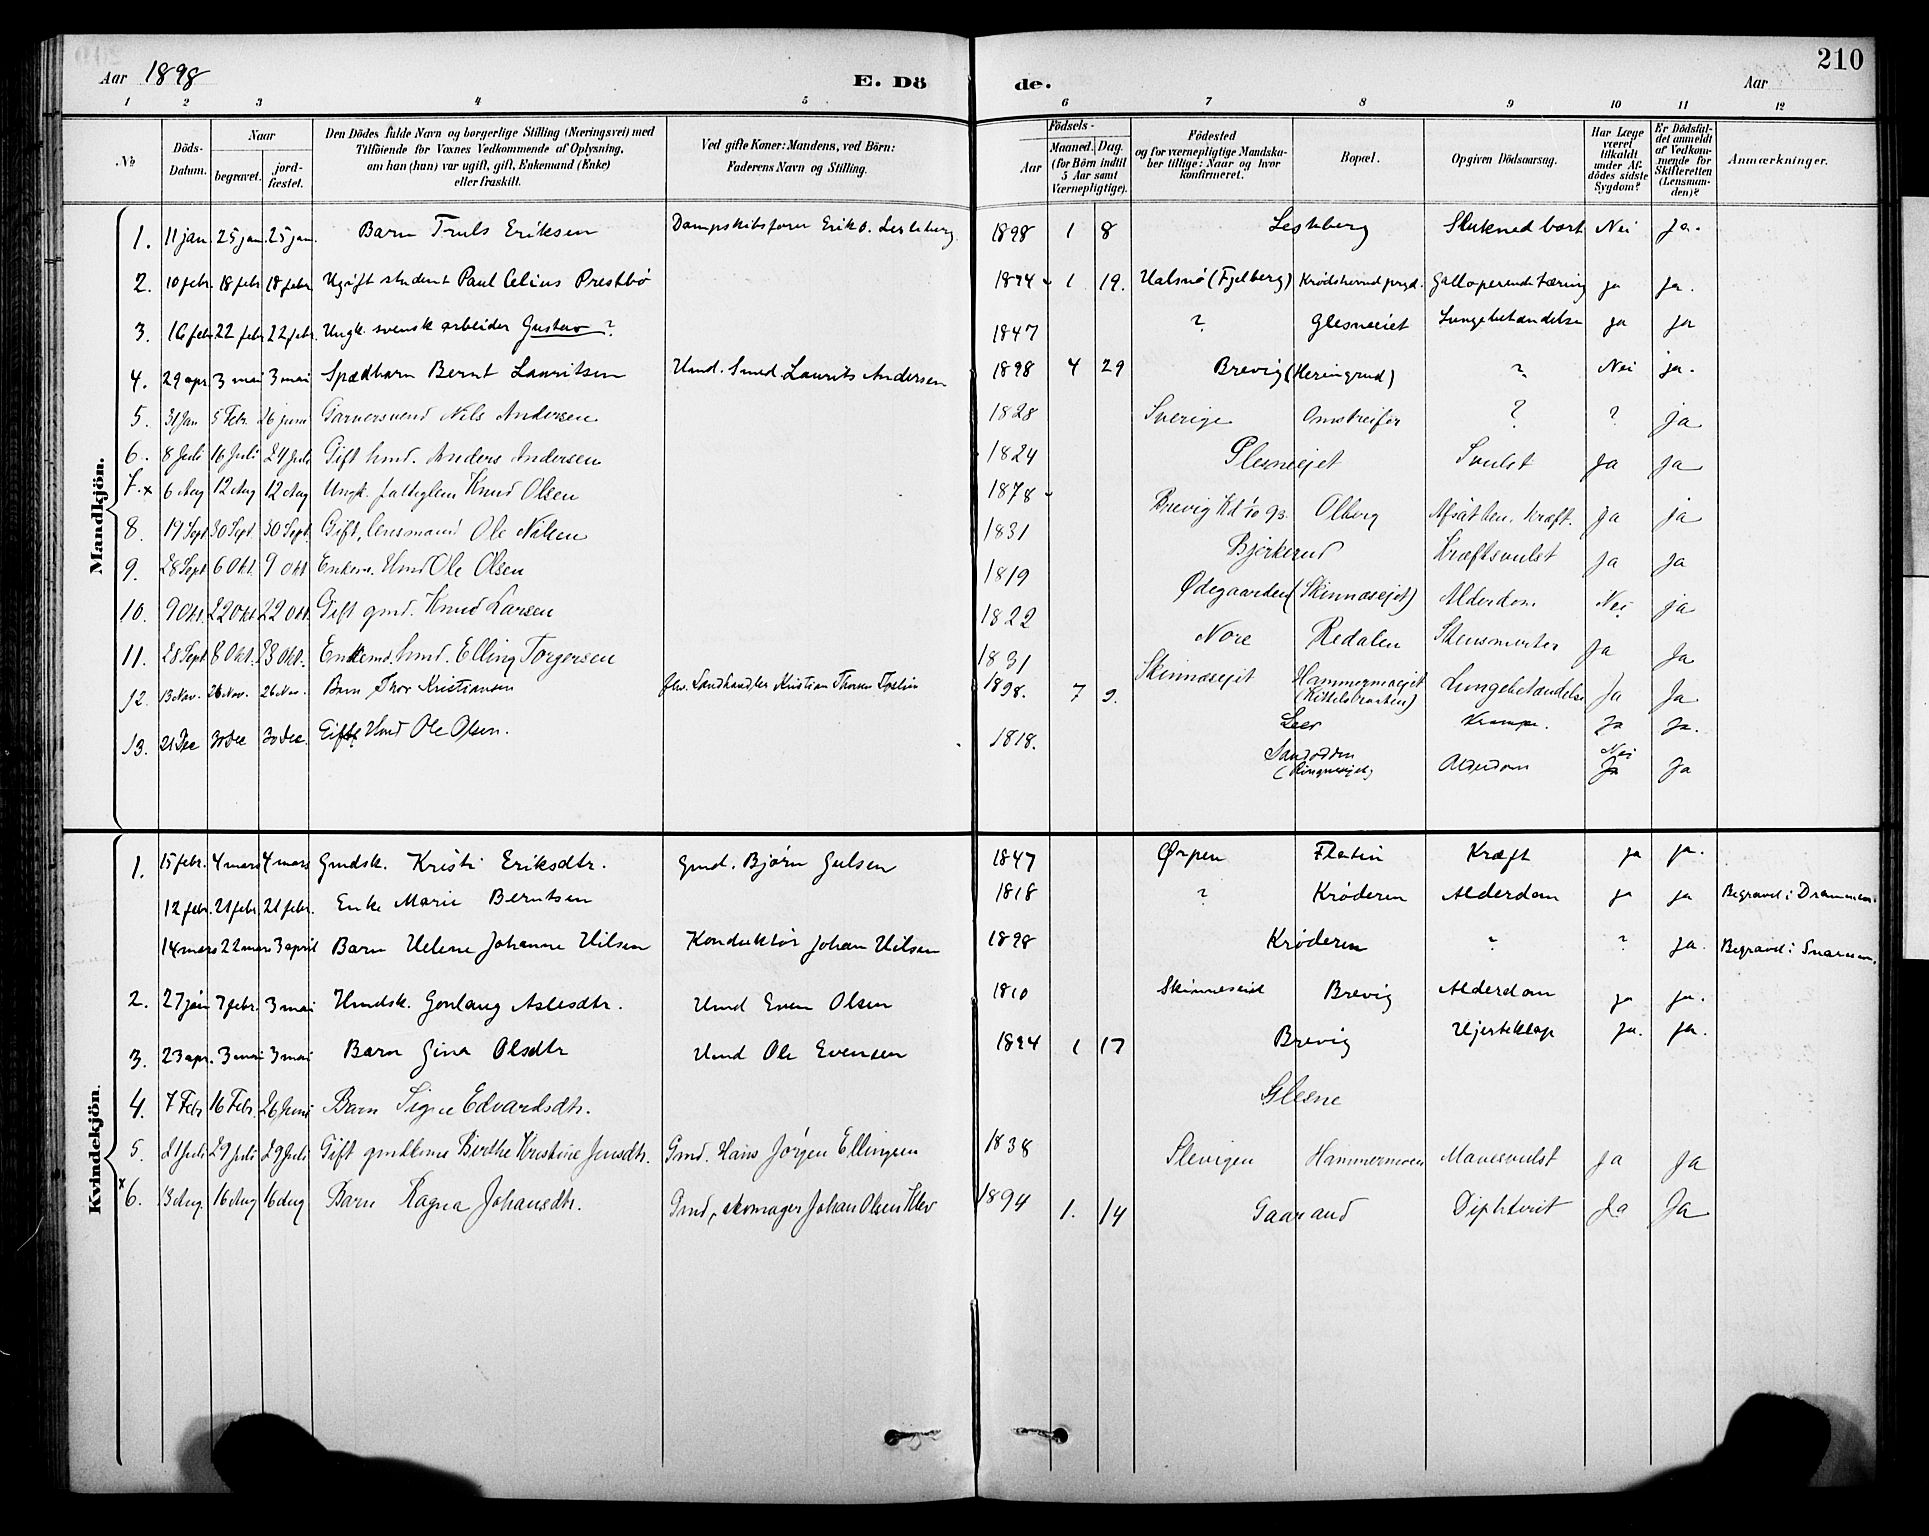 Aar 1898
E. Dö de.
Aar
210
1 2 3 4 5 6 7 8 9 10 11 12
No
Döds-Datum.
Naar
begravet.
jord-fæstet.
Den Dödes fulde Navn og borgerlige Stilling (Næringsvei) med
Tilföiende for Voxnes Vedkommende af Oplysning,
om han (hun) var ugift, gift, Enkemand (Enke)
eller fraskilt.
Ved gifte Koner: Mandens, ved Börn:
Faderens Navn og Stilling.
Födsels-
Aar
Maaned. Dag.
(for Börn indtil
5 Aar samt
Værnepligtige).
Födested
og for værnepligtige Mandska-
ber tillige: Naar og hvor
konfirmeret.
Bopæl.
Opgiven Dödsaarsag.
Har Læge
været
tilkaldt
under Af-
dödes sidste
Sygdom?
Er Dödsfal-
det anmeldt
af Vedkom-
mende for
Skifteretten
(Lensman-
den)?
Anmærkninger.
Mandkjön.
1. 11 jan. 25 jan. 25 jan. Barn Truls Eriksen Erik O. Lesteberg 1898 1 8 Lesteberg Nei Ja.
2. 10 febr. 18 febr 18 febr. Ugift student Paul Celius Prestbø 1874 1 19. Halsnø (Fjelberg) Krødsherred prgd. Galloperende tæring ja ja.
3. 16 febr 22 febr 22 febr. Ungk. svensk arbeider Gustav ? 1847 ? Glesneeiet Lungebetændelse ja ja
4. 29 apr. 3 mai 3 mai Spædbarn Bernt Lauritsen Hmd. Smed Laurits Andersen 1898 4 29 Brevig (Heringrud) ? Nei ja.
5. 31 Jan 5 Febr. 26 juni Garversvend Nils Andersen 1828 Sverige Omstreifer ? ? ja
6. 8 Juli 16 Juli 24 Juli Gift hmd. Anders Andersen 1824 Glesneejet Svulst Ja ja
7. x 6 Aug 12 Aug 12 Aug Ungk. fattiglem Knud Olsen 1878 Brevig Olberg Ja ja
8. 19 Sept 30 Sept. 30 Sept. Gift, lensmand Ole Nilsen 1831 Bjørkerud Kræftsvulst Ja Ja
9. 28 Sept 6 Okt. 9 Okt Enkem. Hmd Ole Olsen 1819 Ødegaarden (Skinnesejet) Alderdom Nei ja
10. 9 Okt. 22 Okt 22 Okt. Gift gmd. Knud Larsen 1822 Nore Redalen Ja Ja
11. 28 Sept 8 Okt. 23 Okt. Enkemd. hmd. Elling Torgersen 1831 Skinnesejet Hammernesejet Lungebetændelse Ja Ja
12. 13 Nov. 26 Nov. 26 Nov. Barn Thor Kristiansen Landhandler Kristian Thorsen 1898. 7 9. Leer Krampe. Ja Ja.
13. 21 Dec 30 Dec 30 Dec. Gift Hmd Ole Olsen. 1818. Sandodden (Ringnesejet) Alderdom Nei Ja Ja
Kvindekjön.
1. 15 febr. 4 mars 4 mars Gmdsk. Kristi Eriksdtr. Gmd. Bjørn Gulsen 1847 Ørpen Flatin Kræft ja ja.
12 febr. 21 febr. 21 febr. Enke Marie Berntsen 1818 ? Krøderen Alderdom ja ja Begravet i Drammen.
14 mars 22 mars 3 april Barn Helene Johanne Nilsen Konduktør Johan Nilsen 1898 Krøderen ? ? ja. Begravet i Snarum.
2. 27 jan 7 febr. 3 mai Hmdsk. Gonlaug Aslesdtr. Hmd Even Olsen 1810 Skinneseiet Brevig Alderdom ja ja.
3. 23 apr. 3 mai 3 mai Barn Gina Olsdtr Hmd Ole Evensen 1894 1 17 Brevig Hjerteklap ja. ja.
4. 7 Febr 16 Febr. 26 Juni Barn Signe Edvardsdtr. Glesne
5. 21 Juli 29 Juli 29 Juli Gift Birthe Kristine Jensdtr. Gmd. Hans Jørgen Ellingsen 1838 Slevigen Hammernesen Mavesvulst Ja Ja
x 6. 13 Aug. 16 Aug 16 Aug Barn Ragna Johansdtr. Gmd, skomager Johan Olsen Klev 1894 1. 14 Gaasrand Diphterit Ja Ja